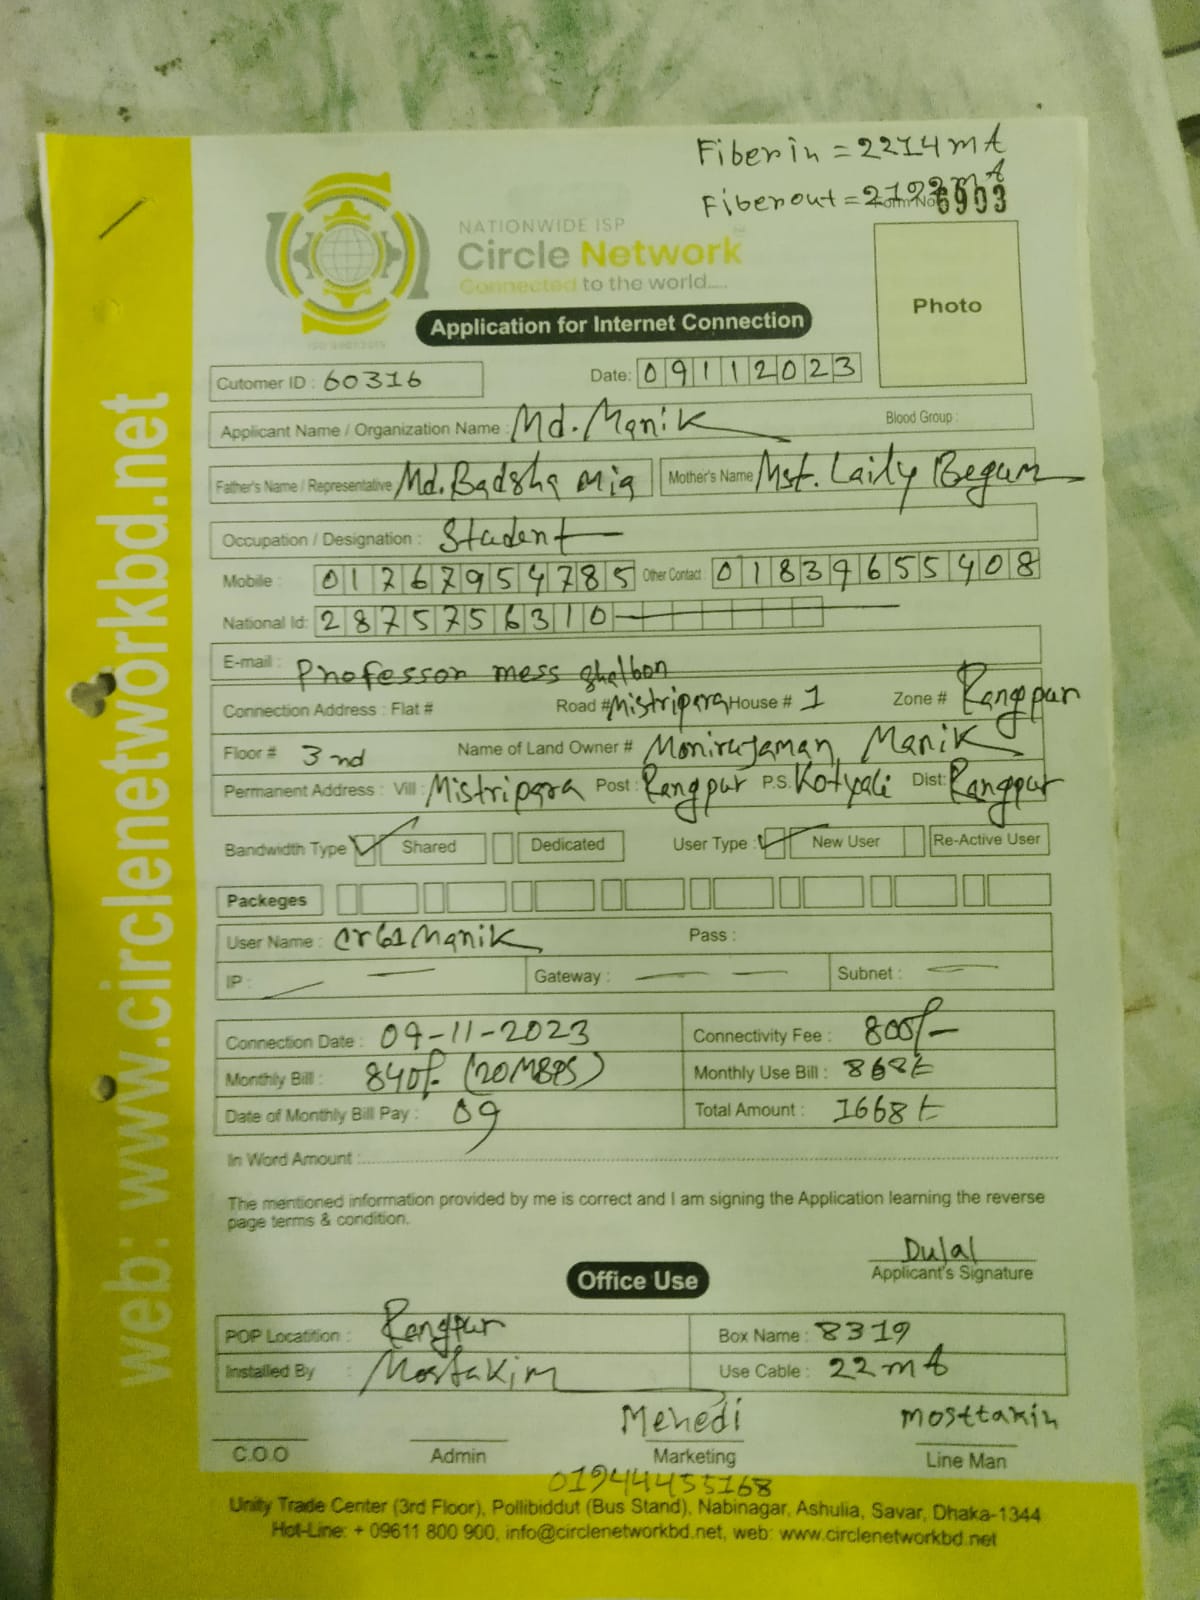 Fiber in = 2214 mt
Fiber out = 2192 mt
Form No 6903
NATIONWIDE ISP
Circle Network
Connected to the world....
Application for Internet Connection
Photo
Cutomer ID : 60316 Date: 09112023
Applicant Name / Organization Name : Md. Manik Blood Group :
Father's Name / Representative Md. Badsha mia Mother's Name Mst. Laily Begum
Occupation / Designation : Student
Mobile : 01767954785 Other Contact : 01839655408
National Id: 2875756310
E-mail :
Professor mess shalbon
Connection Address : Flat # Road # Mistripara House # 1 Zone # Rangpur
Floor # 3 nd Name of Land Owner # Monirujaman Manik
Permanent Address : Vill : Mistripara Post : Rangpur P.S. Kotyali Dist: Rangpur
Bandwidth Type Shared Dedicated User Type : New User Re-Active User
Packeges
User Name : cr61Manik Pass :
IP : Gateway : Subnet :
Connection Date : 09-11-2023 Connectivity Fee : 800/-
Monthly Bill : 840/- (20MBPS) Monthly Use Bill : 868t
Date of Monthly Bill Pay : 09 Total Amount : 1668t
In Word Amount :
The mentioned information provided by me is correct and I am signing the Application learning the reverse
page terms & condition.
Dulal
Applicant's Signature
Office Use
POP Locatition : Rangpur Box Name : 8319
Installed By : Mostakim Use Cable : 22 mt
Mehedi mosttakin
C.O.O Admin Marketing Line Man
01944455168
Unity Trade Center (3rd Floor), Pollibiddut (Bus Stand), Nabinagar, Ashulia, Savar, Dhaka-1344
Hot-Line: + 09611 800 900, info@circlenetworkbd.net, web: www.circlenetworkbd.net
web: www.circlenetworkbd.net